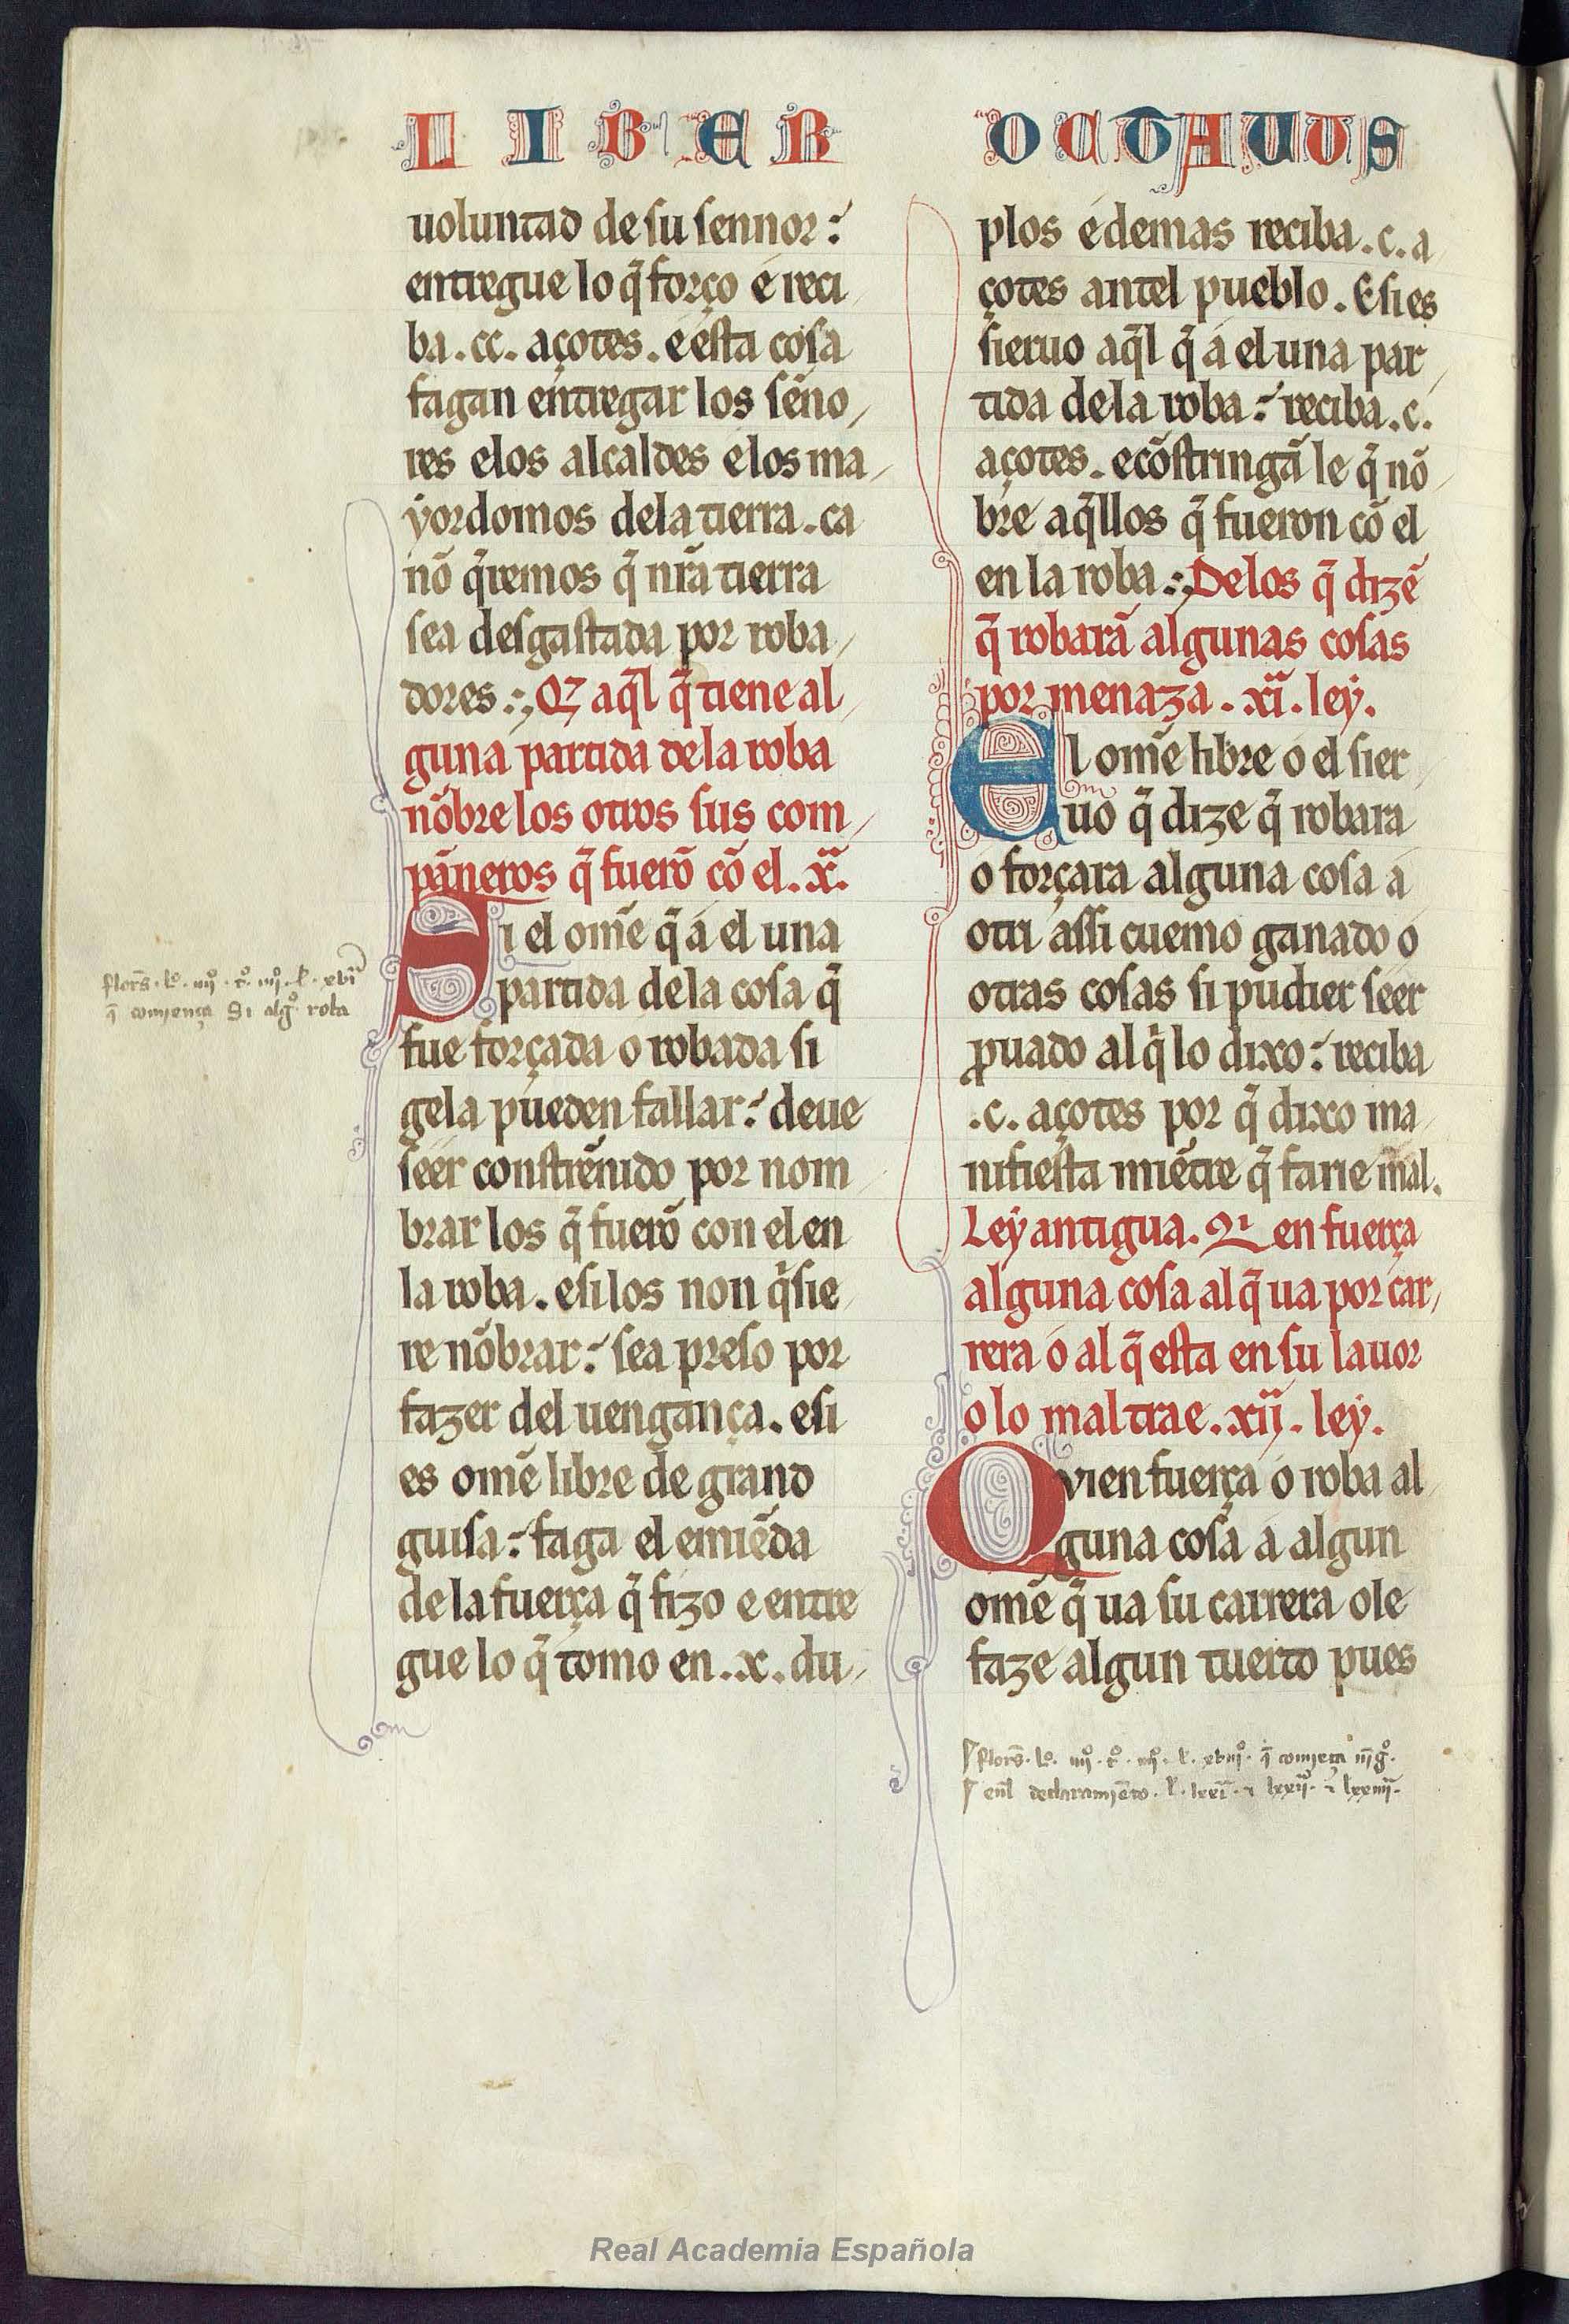 LIBER OCTAUUS
uoluntad de su sennor:
entregue lo q̃ forço e reci
ba .cc. açotes. e esta cosa
fagan entregar los seño
res e los alcaldes e los ma
yordomos de la tierra. ca
nõ q̃remos q̃ nr̃a tierra
sea desgastada por roba
dores:, Q̃ aq̃l q̃ tiene al
guna partida de la roba
nõbre los otros sus com
pãneros q̃ fuerõ cõ el. xª.
Si el om̃e q̃ a el una
partida de la cosa q̃
fue forçada o robada si
gela pueden fallar: deue
seer constrẽnido por nom
brar los q̃ fuerõ con el en
la roba. e si los non q̃sie
re nõbrar: sea preso por
fazer del uengança. e si
es omẽ libre de grand
guisa: faga el emiẽda
de la fuerça q̃ fizo e entre
gue lo q̃ tomo en .x. du
plos e demas reciba .c. a
çotes antel pueblo. E si es
sieruo aq̃l q̃ a el una par
tida de la roba: reciba .c.
açotes. e cõstringã le q̃ nõ
bre aq̃llos q̃ fueron cõ el
en la roba:, De los q̃ dizẽ
q̃ robarã algunas cosas
por menaza. .xiª. ley.
El om̃e libre o el sier
uo q̃ dize q̃ robara
o forçara alguna cosa a
otri assi cuemo ganado o
otras cosas si pudier seer
ꝓuado al q̃ lo dixo: reciba
.c. açotes por q̃ dixo ma
nifiesta miẽtre q̃ farie mal.
Ley antigua. Qͥ en fuerça
alguna cosa al q̃ ua por car
rera o al q̃ esta en su lauor
o lo maltrae. xijª. ley.
Qvien fuerça o roba al
guna cosa a algun
omẽ q̃ ua su carrera o le
faze algun tuerto pues
q̃ comjença Si algº roba
Real Academia Española